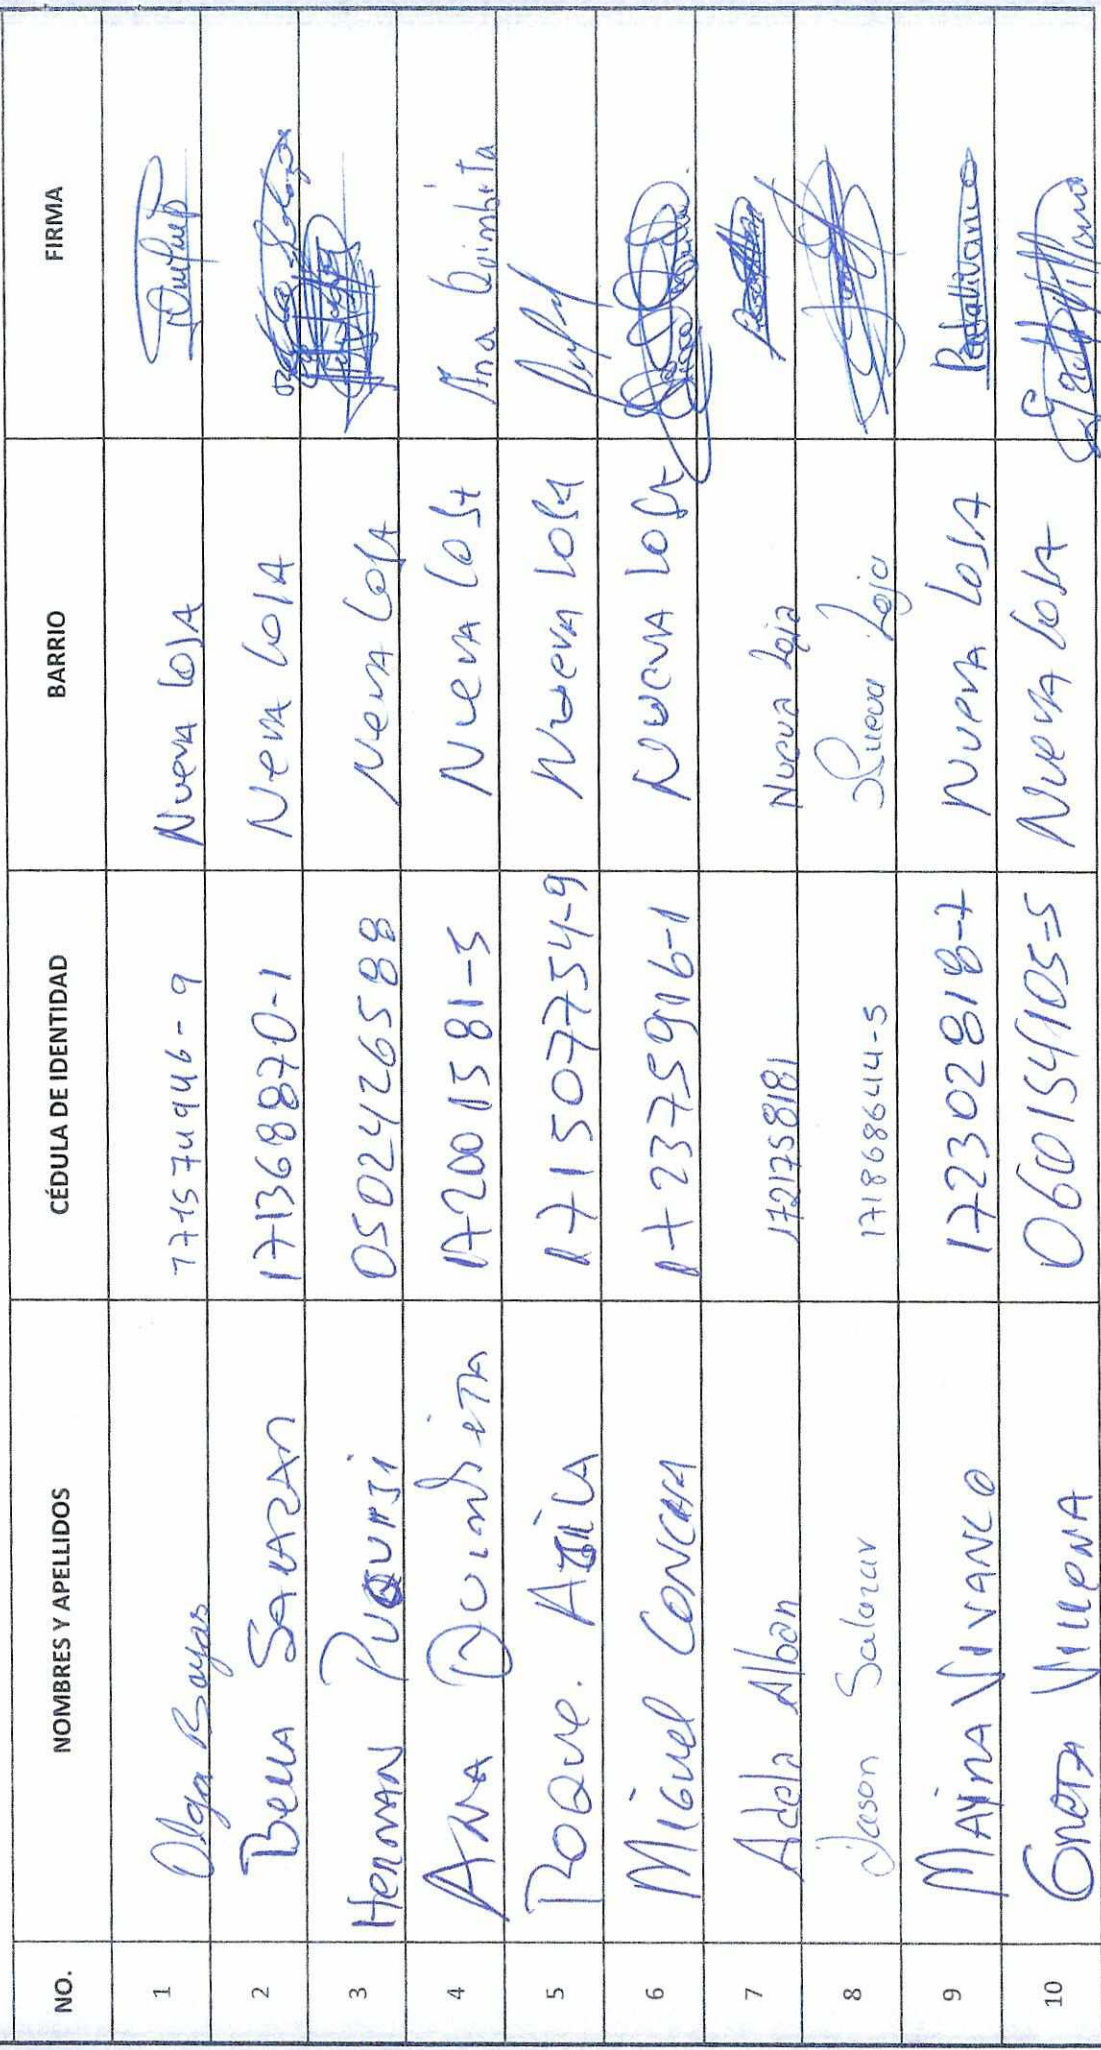 NO. NOMBRES Y APELLIDOS CÉDULA DE IDENTIDAD BARRIO FIRMA
1 Olga Bayas 171574946-9 Nueva LOJA
2 Bella SALAZAR 171368870-1 Neva LOJA
3 Hernan 0502426588 Neva LOJA
4 ANA Quimbita 172001581-5 Nueva LOJA Ana Quimbita
5 ROQUE. 171507754-9 Nueva LOJA
6 Miguel CONCHA 172375916-1 Nueva LOJA
7 Adela Alban 1721758181 Nueva Loja
8 Jason Salazar 171868644-5 Nueva Loja
9 MAYRA VIVANCO 172302818-7 Nueva LOJA
10 GRETA VILLENA 060154105-5 Nueva LOJA